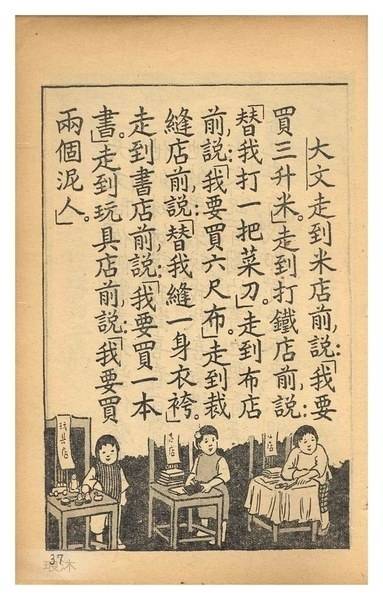 大文走到米店前，說：「我要
買三升米。」走到打鐵店前，說：
「替我打一把菜刀。」走到布店
前，說：「我要買六尺布。」走到裁
縫店前，說：「替我縫一身衣袴。」
走到書店前，說：「我要買一本
書。」走到玩具店前，說：「我要買
兩個泥人。」
玩具店
37